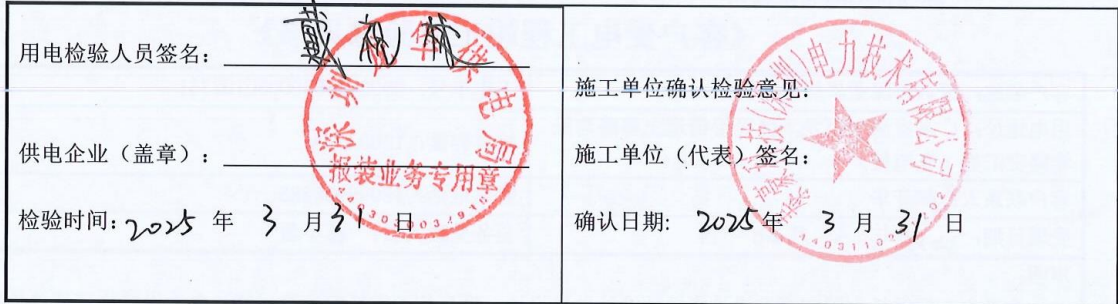 用电检验人员签名：戴
供电企业（盖章）：
检验时间：2025 年 3 月 31 日
深圳 供电局
报装业务专用章
施工单位确认检验意见：
施工单位（代表）签名：
确认日期： 2025 年 3 月 31 日
科技（深圳）电力技术有限公司